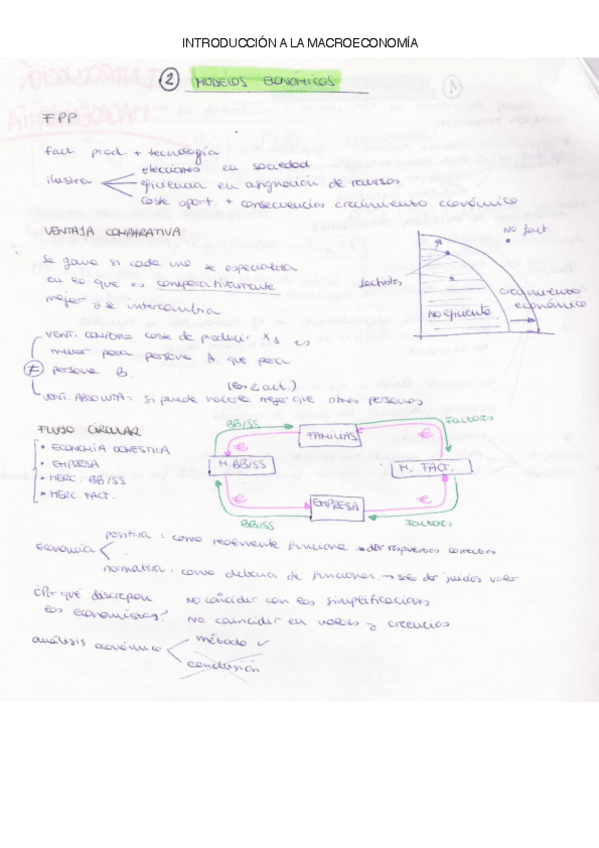 INTRODUCCIÓN A LA MACROECONOMÍA
② MODELOS ECONOMICOS
FPP
fact. prod. + tecnología
ilustra
elecciones en sociedad
eficiencia en asignación de recursos
coste oport. + consecuencias crecimiento económico
VENTAJA COMPARATIVA
Se gana si cada uno se especializa
en lo que es comparativamente
mejor y se intercambia
No fact.
factibles
No eficiente
crecimiento
económico
≠
VENT. COMPAR = coste de producir X1 es
menor para persona A que para
persona B.
VENT. ABSOLUTA = si puede hacerlo mejor que otras personas
FLUJO CIRCULAR
• ECONOMÍA DOMESTICA
• EMPRESA
• MERC. BB/SS
• MERC. FACT.
BB/SS
FAMILIAS
Factores
€
€
M. BB/SS
M. FACT.
€
EMPRESA
€
BB/SS
Factores
Economía
positiva : como realmente funciona → dar respuestas correctas
normativa : como debería de funcionar → solo dar juicios valor
¿Por qué discrepan
los economistas?
no coincidir con las simplificaciones
no coincidir en valores y creencias
análisis económico
método ✓
conclusión